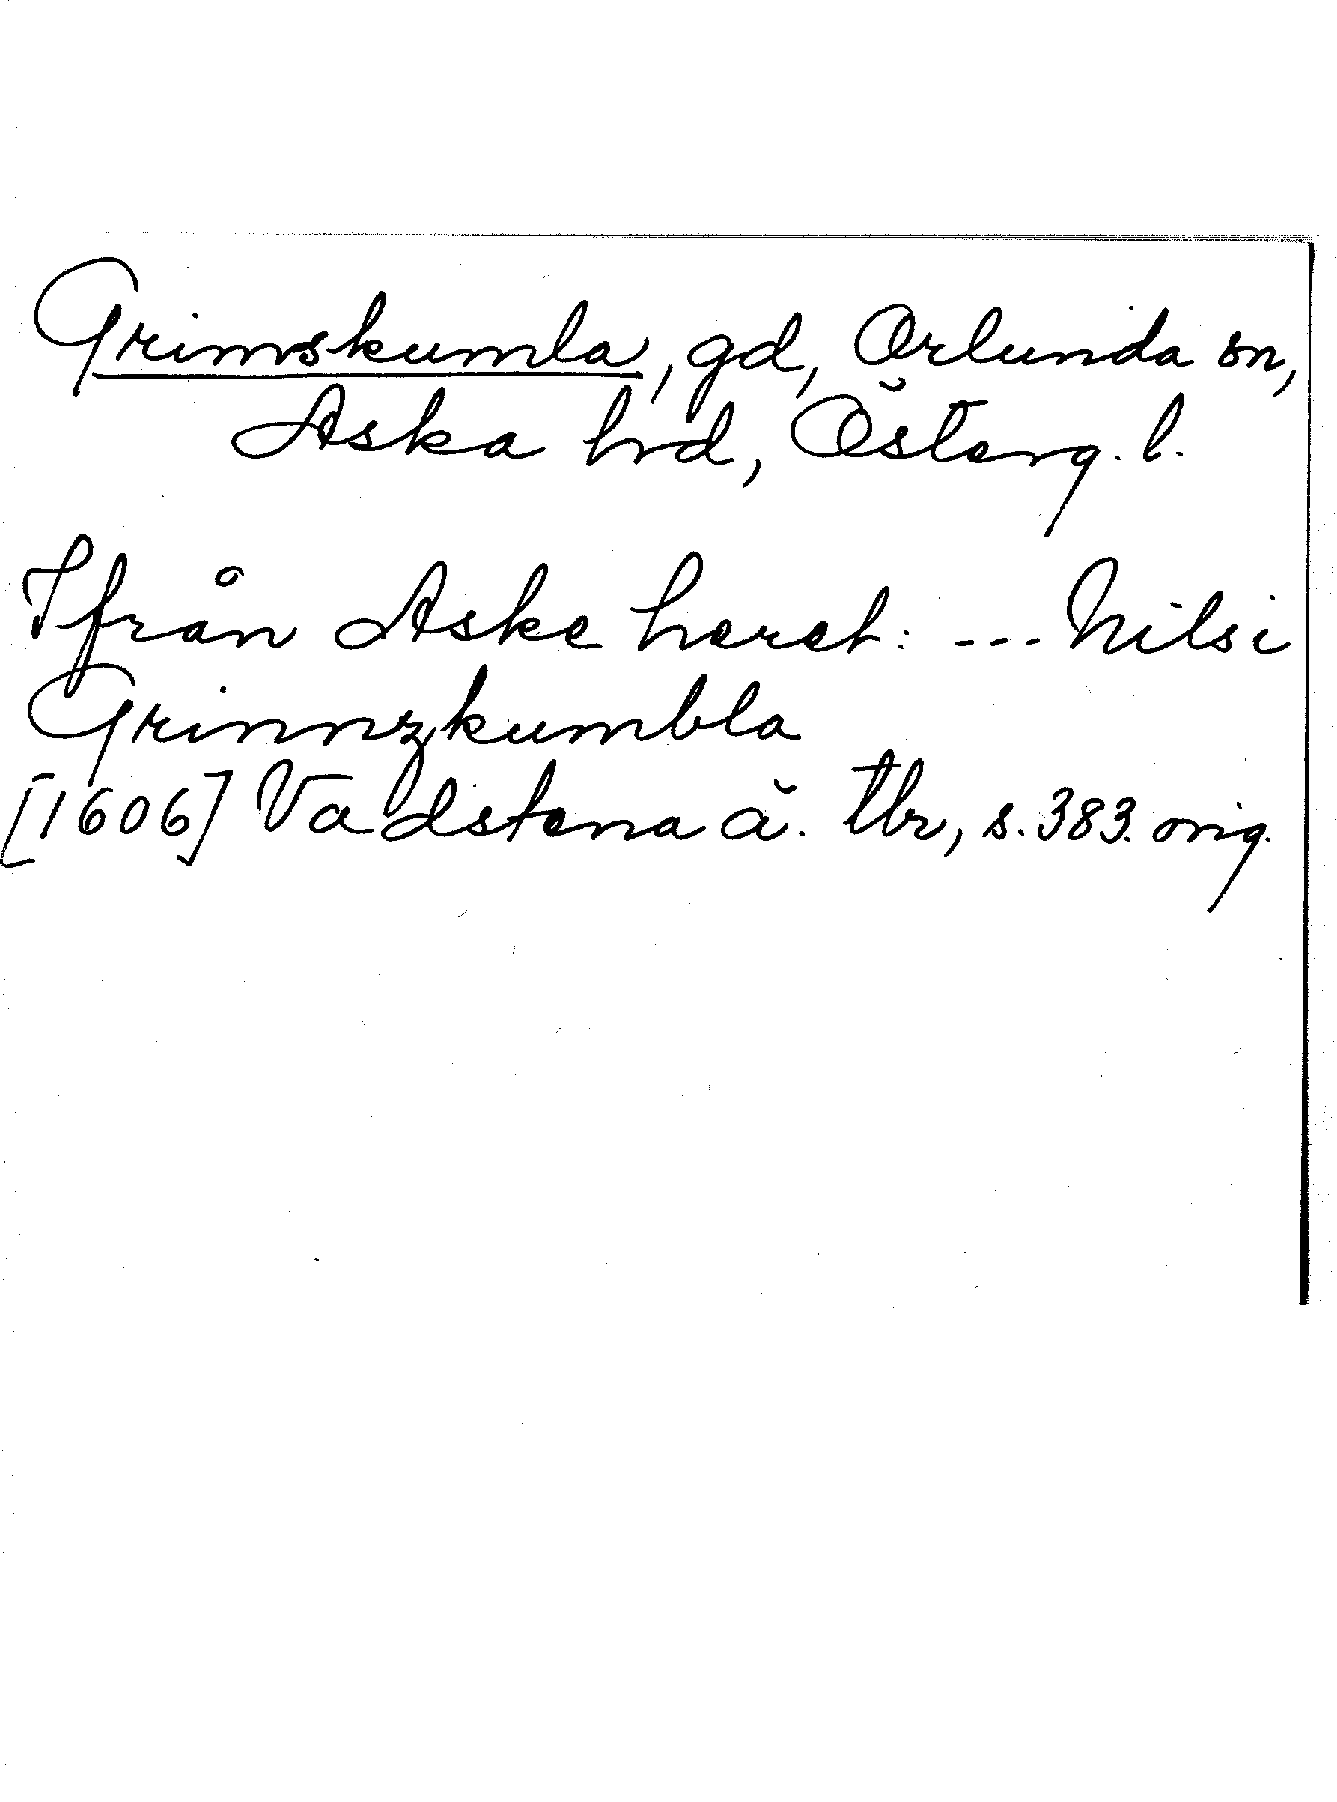 Grimskumla, gd, Orlunda sn,
Aska hd, Österg. l.
Ifrån Aske heret: --- Nils i
Grinnzkumbla
[1606] Vadstena ä. tbr, s. 383. orig.